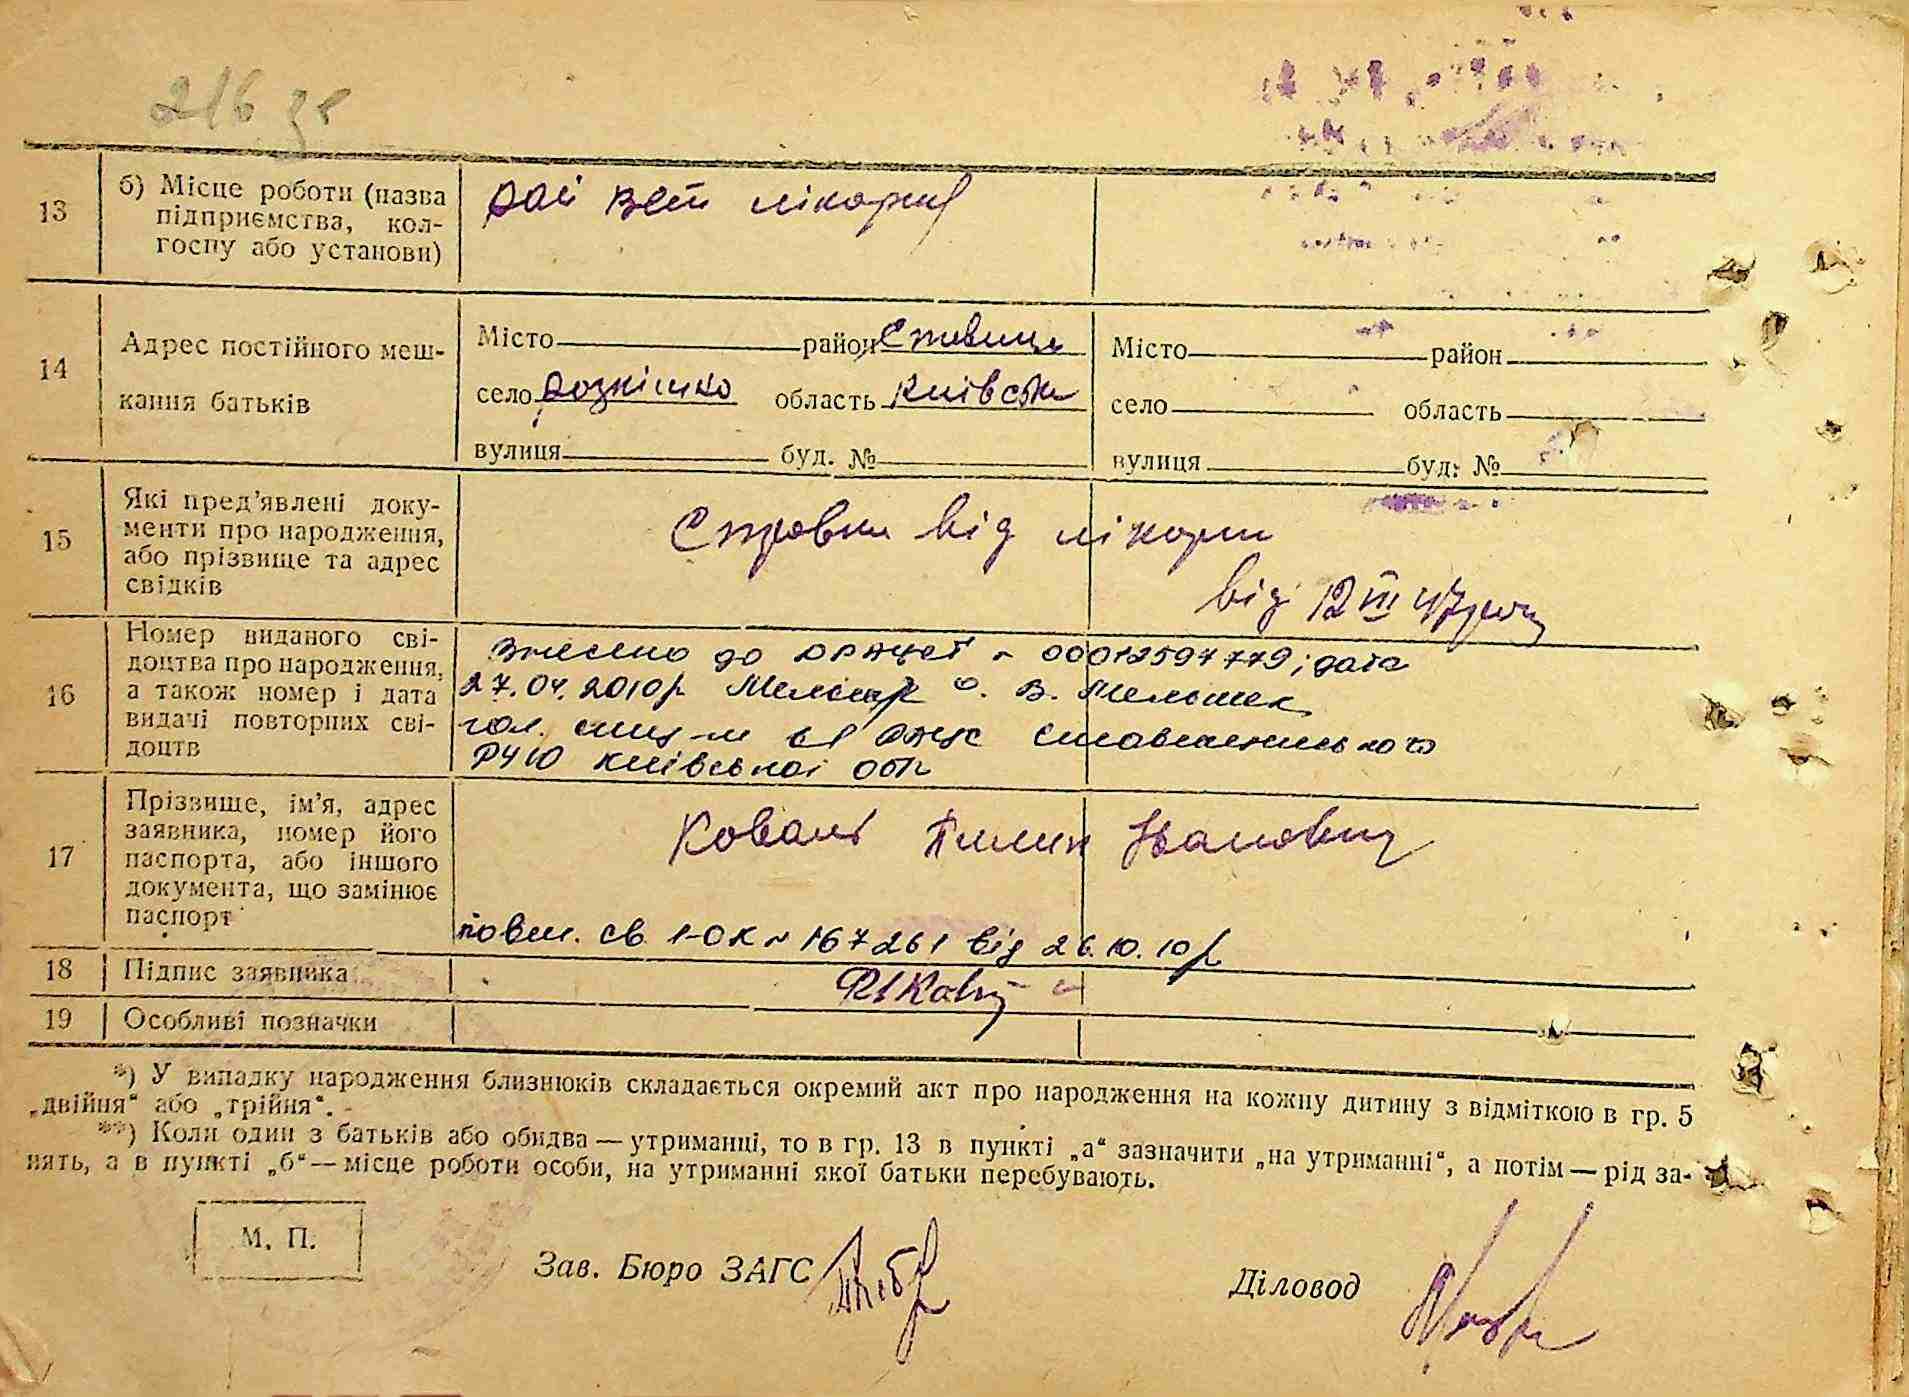 216 зв
13
б) Місце роботи (назва
підприємства, кол-
госпу або установи)
рай вет лікарня
14
Адрес постійного меш-
кання батьків
Місто район Ставище
село Розкішна область Київська
вулиця буд. №
Місто район
село область
вулиця буд. №
15
Які пред’явлені доку-
менти про народження,
або прізвище та адрес
свідків
Справка від лікаря
від 12 III 47 року
16
Номер виданого сві-
доцтва про народження,
а також номер і дата
видачі повторних сві-
доцтв
Внесено до ДРАЦСГ № 00012597779; дата
27.04.2010р. О. В. Мельник
гол. спец-т ВР АЦС Ставищенського
РУЮ Київської обл
17
Прізвище, ім’я, адрес
заявника, номер його
паспорта, або іншого
документа, що замінює
паспорт
Коваль Пилип Іванович
повт. св. 1-ОК № 167261 від 26.10.10р
18
Підпис заявника
19
Особливі позначки
*) У випадку народження близнюків складається окремий акт про народження на кожну дитину з відміткою в гр. 5
„двійня“ або „трійня“.
**) Коли один з батьків або обидва — утриманці, то в гр. 13 в пункті „а“ зазначити „на утриманні“, а потім — рід за-
нять, а в пункті „б“ — місце роботи особи, на утриманні якої батьки перебувають.
М. П.
Зав. Бюро ЗАГС
Діловод